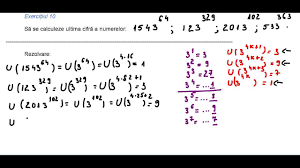 Exercițiul 10
Să se calculeze ultima cifră a numerelor: 1543^64 ; 123^329 ; 2013^102 ; 533^363 .
Rezolvare:
U(1543^64) = U(3^64) = U(3^4·16) = 1
U(123^329) = U(3^329) = U(3^4·82+1) = 3
U(2013^102) = U(3^102) = U(3^4·25+2) = 9
U
3^1 = 3
3^2 = 9
3^3 = 27
3^4 = ...1
3^5 = ...3
3^6 = ...9
3^7 = ...7
U(3^4k+1) = 3 ←
U(3^4k+2) = 9 ←
U(3^4k+3) = 7
U(3^4k) = 1 ←